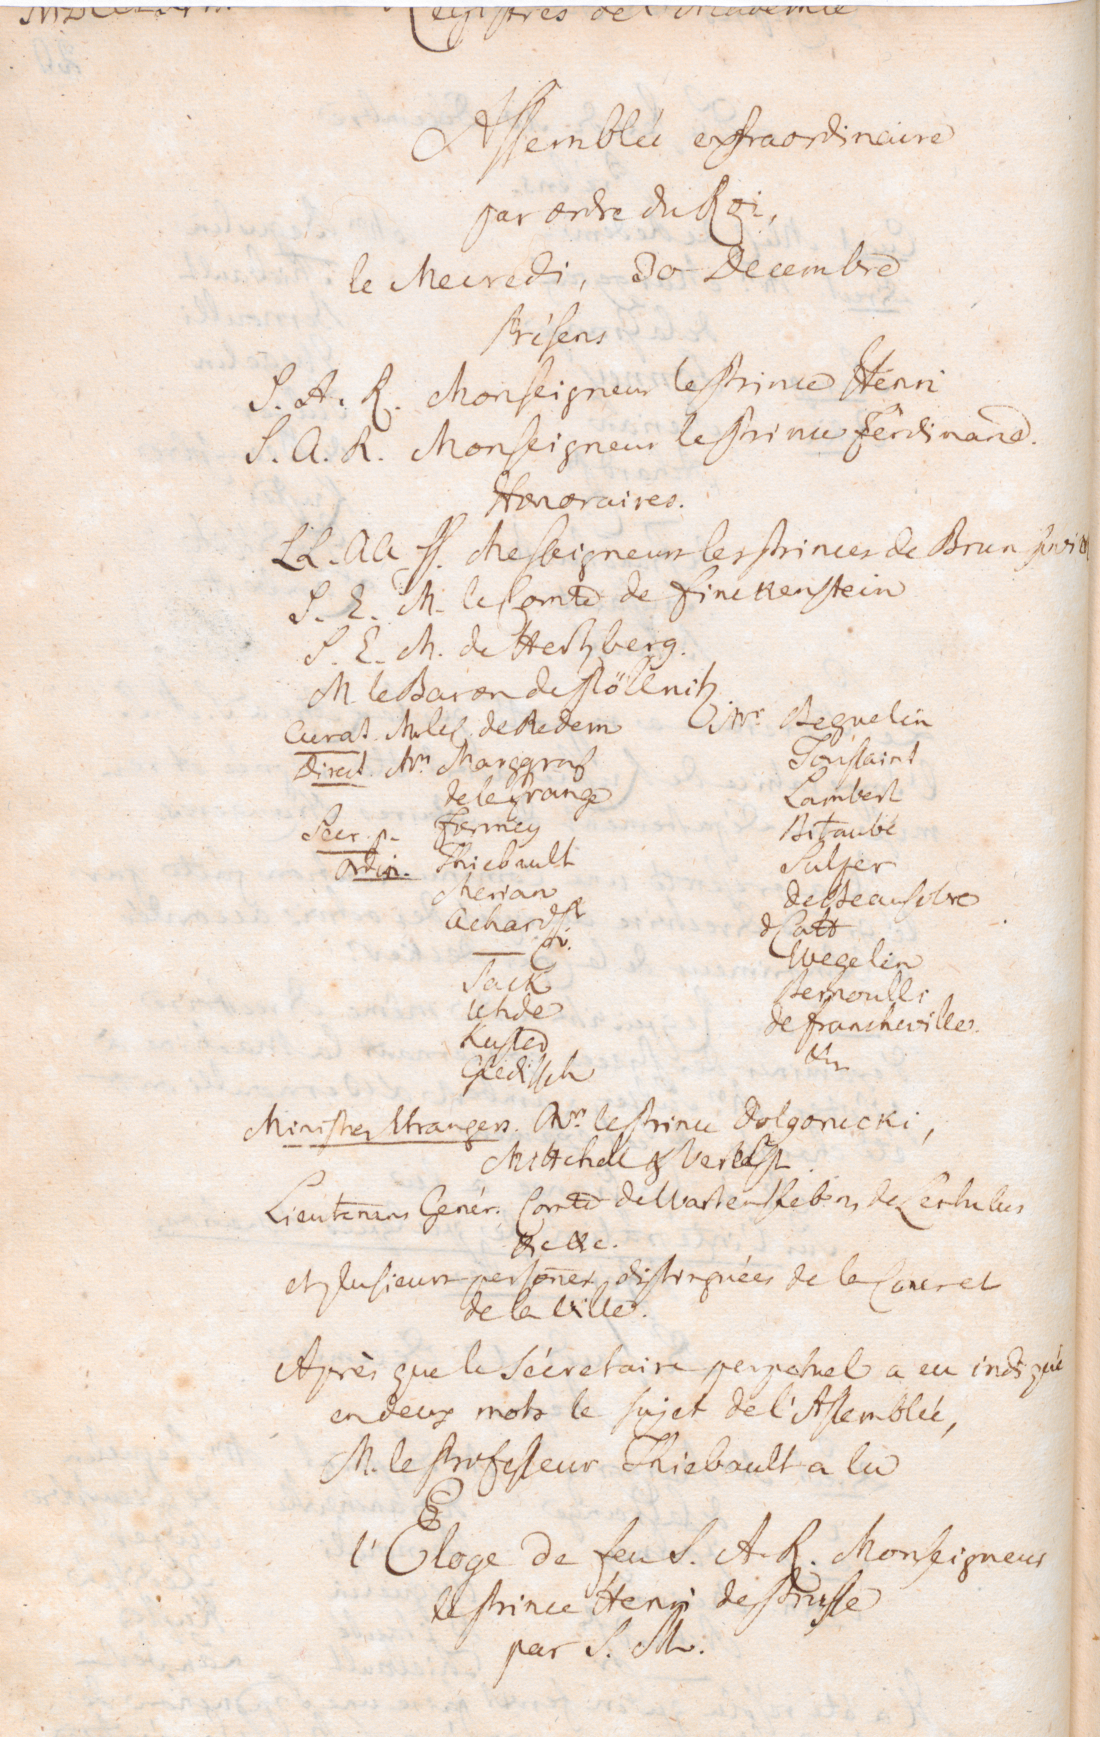 Registres de l'Academie
Assemblée extraordinaire
par ordre du Roi,
le Mecredi, 30 Decembre
Présens
S. A. R. Monseigneur le Prince Henri
S. A. R. Monseigneur le Prince Ferdinand.
Honoraires.
LL. AA. SS. Messeigneurs les Princes de Brunswic
S. E. M. le Comte de Finckenstein
S. E. M. de Hertzberg.
M. le Baron de Pöllnitz
Curat. de Redern
Direct. Mrs Marggraf
de la Grange
Secr. p. Formey
Ordin. Thiebault
Merian
Achard
Sack
Uhde
Kuster
Gleditsch
Mrs Beguelin
Toussaint
Lambert
Bitaubé
Sulzer
de Beausobre
de Catt
Wegelin
Bernoulli
de Francheville.
Ministres Etrangers. Mrs le Prince Dolgorucki,
Mittchell & Verelst.
Lieutenans Génér. Comte de Wartensleben, de Lentulus
&c &c.
et plusieurs personnes distinguées de la Cour et
de la Ville.
Après que le Sécretaire perpetuel a eu indiqué
en deux mots le sujet de l'Assemblée,
M. le Professeur Thiebault a lu
l'Eloge de feu S. A. R. Monseigneur
le Prince Henri de Prusse
par S. M.